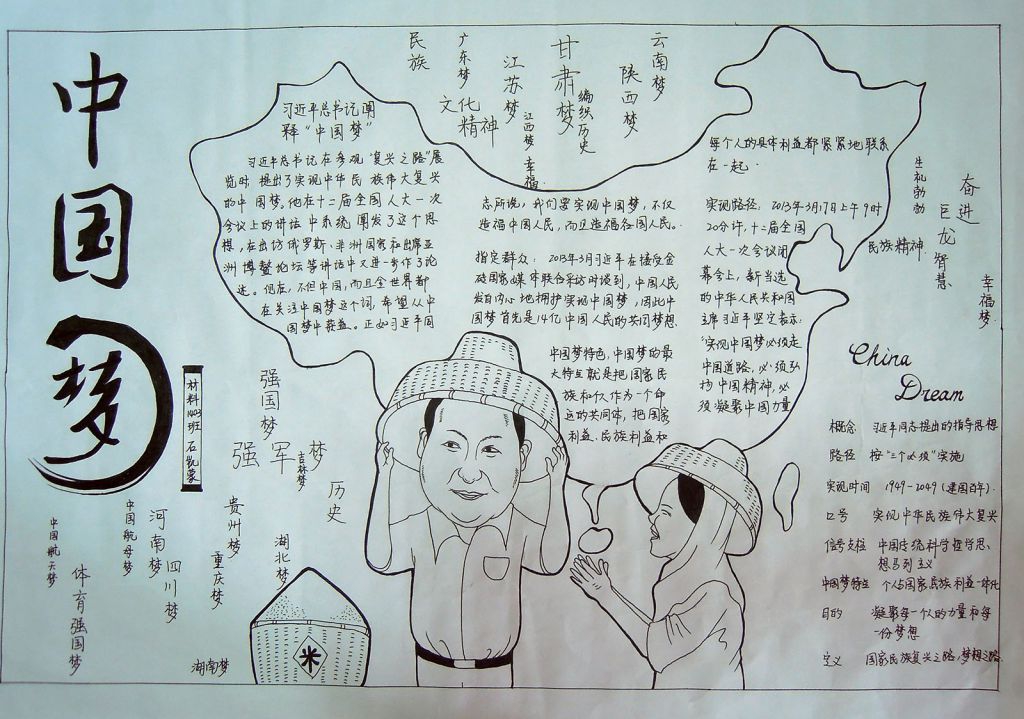 中国梦
材料1403班 石凯蒙
民族
广东梦
文化
精神
江苏梦
江西梦
幸福
甘肃梦
编织历史
陕西梦
云南梦
习近平总书记阐
释“中国梦”
习近平总书记在参观“复兴之路”展
览时 提出了实现中华民族伟大复兴
的中国梦,他在十二届全国人大一次
会议上的讲话中系统阐发了这个思
想,在出访俄罗斯、非洲国家和出席亚
洲博鳌论坛等讲话中又进一步作了论
述。现在,不但中国,而且全世界都
在关注中国梦这个词,希望从中
国梦中获益。正如习近平同
志所说,我们要实现中国梦,不仅
造福中国人民,而且造福各国人民。
指定群众:2013年3月习近平在接受金
砖国家媒体联合采访时谈到,中国人民
发自内心地拥护实现中国梦,因此中
国梦首先是14亿中国人民的共同梦想
中国梦特色,中国梦的最
大特点就是把国家民
族和个人作为一个命
运的共同体,把国家
利益、民族利益和
每个人的具体利益都紧紧地联系
在一起.
实现路径:2013年3月17日上午9时
20分许,十二届全国
人大一次会议闭
幕会上,新当选
的中华人民共和国
主席习近平坚定表示:
“实现中国梦必须走
中国道路,必须弘
扬中国精神,必
须凝聚中国力量
生机勃勃
奋进
巨龙
智慧
民族精神
幸福梦
China
Dream
概念 习近平同志提出的指导思想
路径 按“三个必须”实施
实现时间 1949-2049(建国百年).
口号 实现中华民族伟大复兴
信号支柱 中国传统科学哲学思、
想马列主义
中国梦特点 个人与国家民族利益一体化
目的 凝聚每一个人的力量和每
一份梦想
定义 国家民族复兴之路,梦想之路
强国梦
强军梦
吉林梦
历史
贵州梦
湖北梦
重庆梦
河南梦
四川梦
中国航母梦
中国航天梦
体育强国梦
湖南梦
米